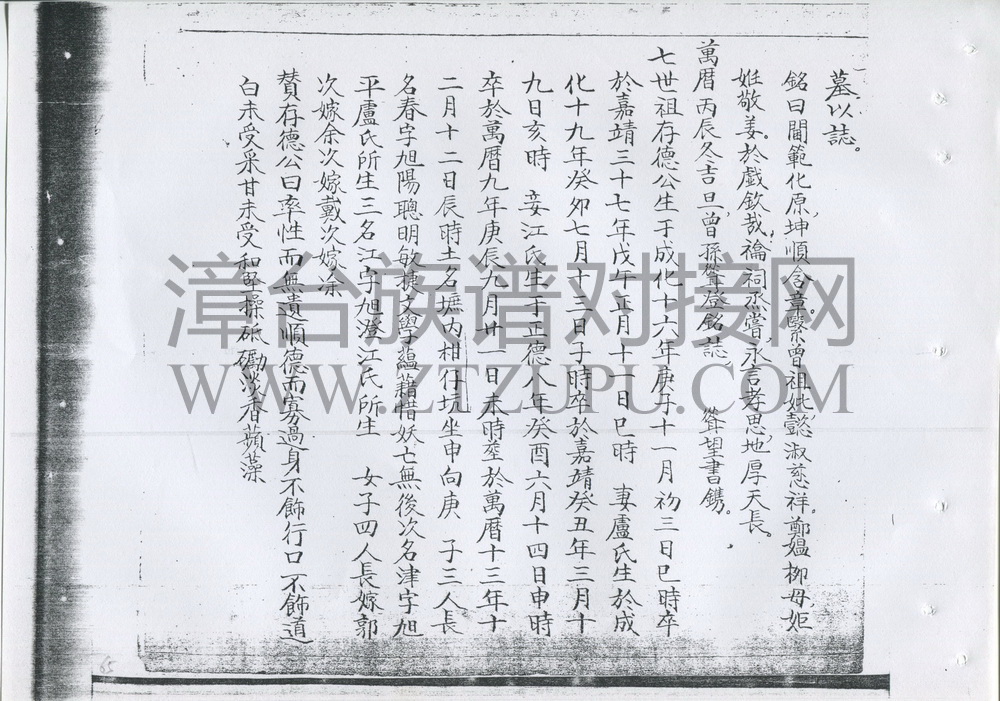 墓以誌。
銘曰閫範化原，坤順含章，繄曾祖妣，懿淑慈祥。鄭媼柳母，妘
姙敬姜。於戲欽哉，禴祠烝嘗，永言孝思，地厚天長。
萬曆丙辰冬吉旦，曾孫聳登銘誌， 聳望書鐫。
七世祖存德公生于成化十六年庚子十一月初三日巳時卒
於嘉靖三十七年戊午正月十一日巳時 妻盧氏生於成
化十九年癸卯七月十三日子時卒於嘉靖癸丑年三月十
九日亥時 妾江氏生于正德八年癸酉六月十四日申時
卒於萬曆九年庚辰九月廿一日未時塟於萬曆十三年十
二月十二日辰時土名墘內柑仔坑坐申向庚 子三人長
名春字旭陽聰明敏捷文學蘊藉惜妖亡無後次名津字旭
平盧氏所生三名江字旭澄江氏所生 女子四人長嫁郭
次嫁余次嫁戴次嫁余
贊存德公曰率性而無遺順德而寡過身不飾行口不飾道
白未受采甘未受和堅操砥礪淡香蘋藻
漳台族谱对接网
WWW.ZTZUPU.COM
65